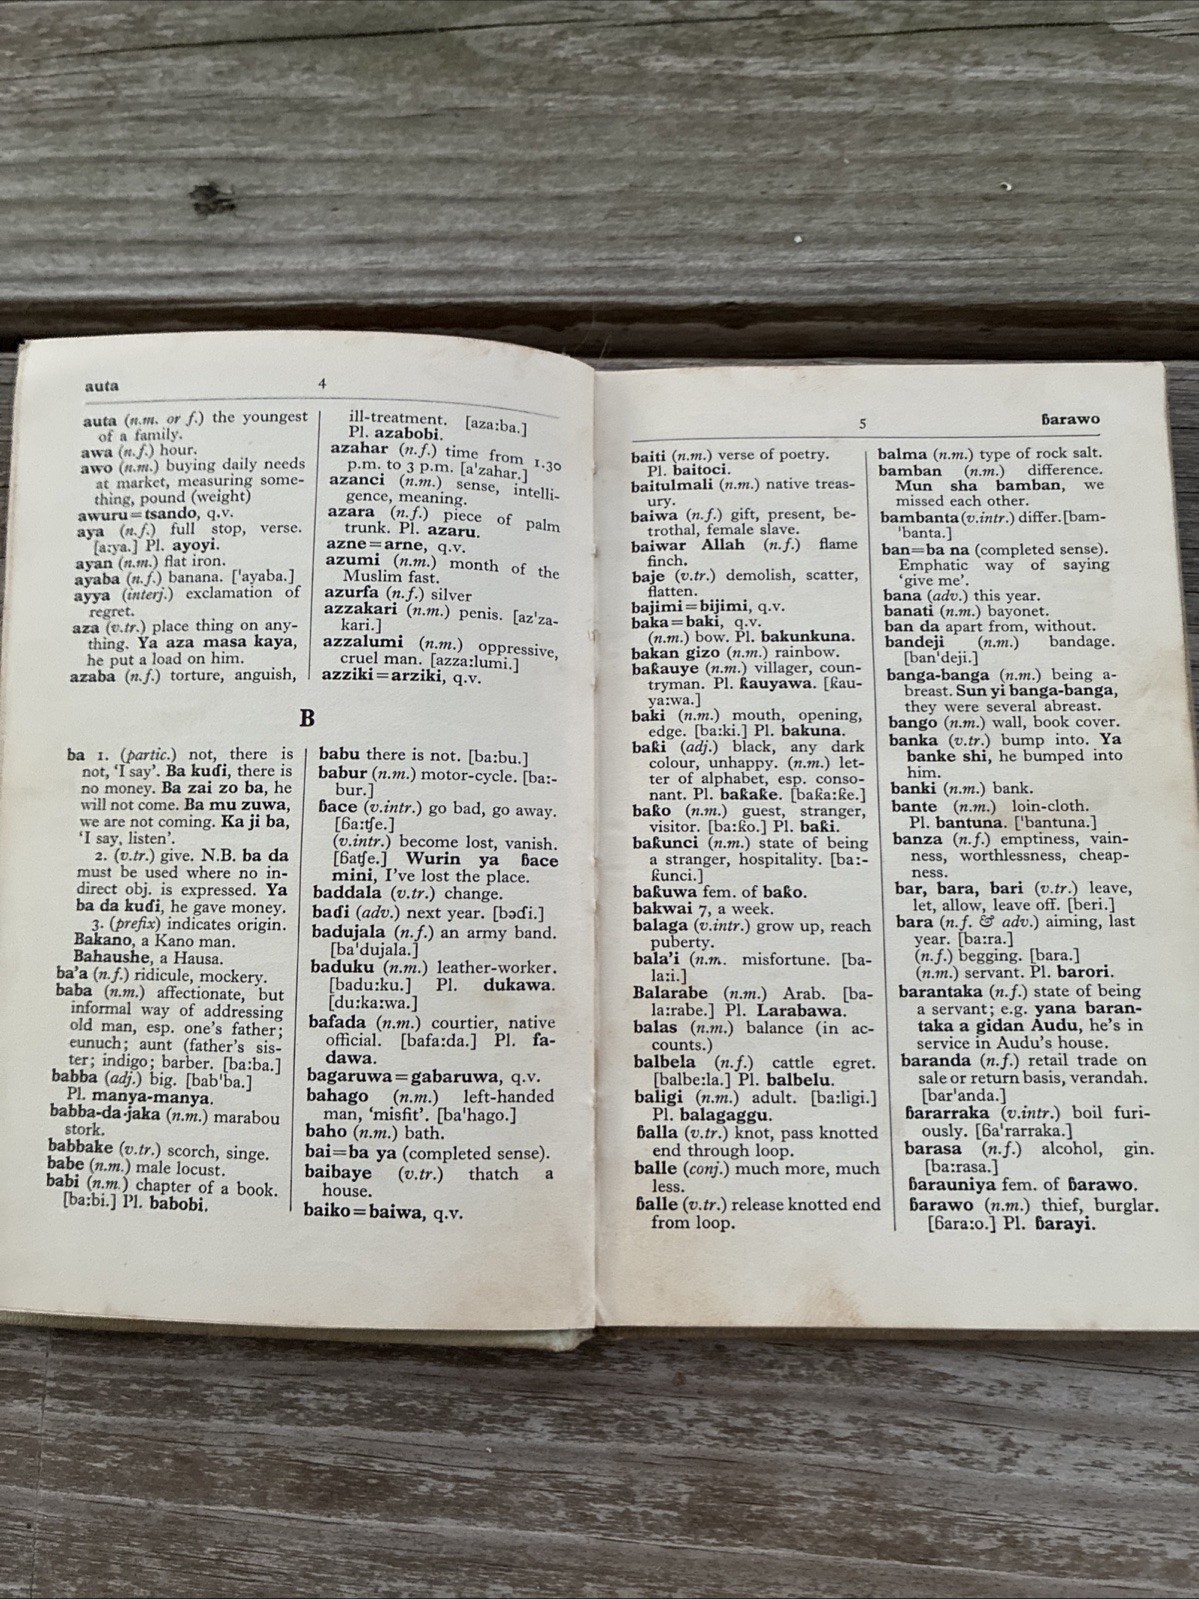 auta
4
auta (n.m. or f.) the youngest
of a family.
awa (n.f.) hour.
awo (n.m.) buying daily needs
at market, measuring some-
thing, pound (weight)
awuru=tsando, q.v.
aya (n.f.) full stop, verse.
[a:ya.] Pl. ayoyi.
ayan (n.m.) flat iron.
ayaba (n.f.) banana. ['ayaba.]
ayya (interj.) exclamation of
regret.
aza (v.tr.) place thing on any-
thing. Ya aza masa kaya,
he put a load on him.
azaba (n.f.) torture, anguish,
ill-treatment. [aza:ba.]
Pl. azabobi.
azahar (n.f.) time from 1.30
p.m. to 3 p.m. [a'zahar.]
azanci (n.m.) sense, intelli-
gence, meaning.
azara (n.f.) piece of palm
trunk. Pl. azaru.
azne=arne, q.v.
azumi (n.m.) month of the
Muslim fast.
azurfa (n.f.) silver
azzakari (n.m.) penis. [az'za-
kari.]
azzalumi (n.m.) oppressive,
cruel man. [azza:lumi.]
azziki=arziki, q.v.
B
ba 1. (partic.) not, there is
not, ‘I say’. Ba kuɗi, there is
no money. Ba zai zo ba, he
will not come. Ba mu zuwa,
we are not coming. Ka ji ba,
‘I say, listen’.
2. (v.tr.) give. N.B. ba da
must be used where no in-
direct obj. is expressed. Ya
ba da kuɗi, he gave money.
3. (prefix) indicates origin.
Bakano, a Kano man.
Bahaushe, a Hausa.
ba'a (n.f.) ridicule, mockery.
baba (n.m.) affectionate, but
informal way of addressing
old man, esp. one's father;
eunuch; aunt (father's sis-
ter; indigo; barber. [ba:ba.]
babba (adj.) big. [bab'ba.]
Pl. manya-manya.
babba-da-jaka (n.m.) marabou
stork.
babbake (v.tr.) scorch, singe.
babe (n.m.) male locust.
babi (n.m.) chapter of a book.
[ba:bi.] Pl. babobi.
babu there is not. [ba:bu.]
babur (n.m.) motor-cycle. [ba:-
bur.]
ɓace (v.intr.) go bad, go away.
[ɓa:ʧe.]
(v.intr.) become lost, vanish.
[ɓaʧe.] Wurin ya ɓace
mini, I've lost the place.
baddala (v.tr.) change.
baɗi (adv.) next year. [bəɗi.]
badujala (n.f.) an army band.
[ba'dujala.]
baduku (n.m.) leather-worker.
[badu:ku.] Pl. dukawa.
[du:ka:wa.]
bafada (n.m.) courtier, native
official. [bafa:da.] Pl. fa-
dawa.
bagaruwa=gabaruwa, q.v.
bahago (n.m.) left-handed
man, ‘misfit’. [ba'hago.]
baho (n.m.) bath.
bai=ba ya (completed sense).
baibaye (v.tr.) thatch a
house.
baiko=baiwa, q.v.
5
ɓarawo
baiti (n.m.) verse of poetry.
Pl. baitoci.
baitulmali (n.m.) native treas-
ury.
baiwa (n.f.) gift, present, be-
trothal, female slave.
baiwar Allah (n.f.) flame
finch.
baje (v.tr.) demolish, scatter,
flatten.
bajimi=bijimi, q.v.
baka=baki, q.v.
(n.m.) bow. Pl. bakunkuna.
bakan gizo (n.m.) rainbow.
baƙauye (n.m.) villager, coun-
tryman. Pl. ƙauyawa. [ƙau-
ya:wa.]
baki (n.m.) mouth, opening,
edge. [ba:ki.] Pl. bakuna.
baƙi (adj.) black, any dark
colour, unhappy. (n.m.) let-
ter of alphabet, esp. conso-
nant. Pl. baƙaƙe. [baƙa:ƙe.]
baƙo (n.m.) guest, stranger,
visitor. [ba:ƙo.] Pl. baƙi.
baƙunci (n.m.) state of being
a stranger, hospitality. [ba:-
ƙunci.]
baƙuwa fem. of baƙo.
bakwai 7, a week.
balaga (v.intr.) grow up, reach
puberty.
bala'i (n.m. misfortune. [ba-
la:i.]
Balarabe (n.m.) Arab. [ba-
la:rabe.] Pl. Larabawa.
balas (n.m.) balance (in ac-
counts.)
balbela (n.f.) cattle egret.
[balbe:la.] Pl. balbelu.
baligi (n.m.) adult. [ba:ligi.]
Pl. balagaggu.
ɓalla (v.tr.) knot, pass knotted
end through loop.
balle (conj.) much more, much
less.
ɓalle (v.tr.) release knotted end
from loop.
balma (n.m.) type of rock salt.
bamban (n.m.) difference.
Mun sha bamban, we
missed each other.
bambanta (v.intr.) differ. [bam-
'banta.]
ban=ba na (completed sense).
Emphatic way of saying
‘give me’.
bana (adv.) this year.
banati (n.m.) bayonet.
ban da apart from, without.
bandeji (n.m.) bandage.
[ban'deji.]
banga-banga (n.m.) being a-
breast. Sun yi banga-banga,
they were several abreast.
bango (n.m.) wall, book cover.
banka (v.tr.) bump into. Ya
banke shi, he bumped into
him.
banki (n.m.) bank.
bante (n.m.) loin-cloth.
Pl. bantuna. ['bantuna.]
banza (n.f.) emptiness, vain-
ness, worthlessness, cheap-
ness.
bar, bara, bari (v.tr.) leave,
let, allow, leave off. [beri.]
bara (n.f. & adv.) aiming, last
year. [ba:ra.]
(n.f.) begging. [bara.]
(n.m.) servant. Pl. barori.
barantaka (n.f.) state of being
a servant; e.g. yana baran-
taka a gidan Audu, he's in
service in Audu's house.
baranda (n.f.) retail trade on
sale or return basis, verandah.
[bar'anda.]
ɓararraka (v.intr.) boil furi-
ously. [ɓa'rarraka.]
barasa (n.f.) alcohol, gin.
[ba:rasa.]
ɓarauniya fem. of ɓarawo.
ɓarawo (n.m.) thief, burglar.
[ɓara:o.] Pl. ɓarayi.